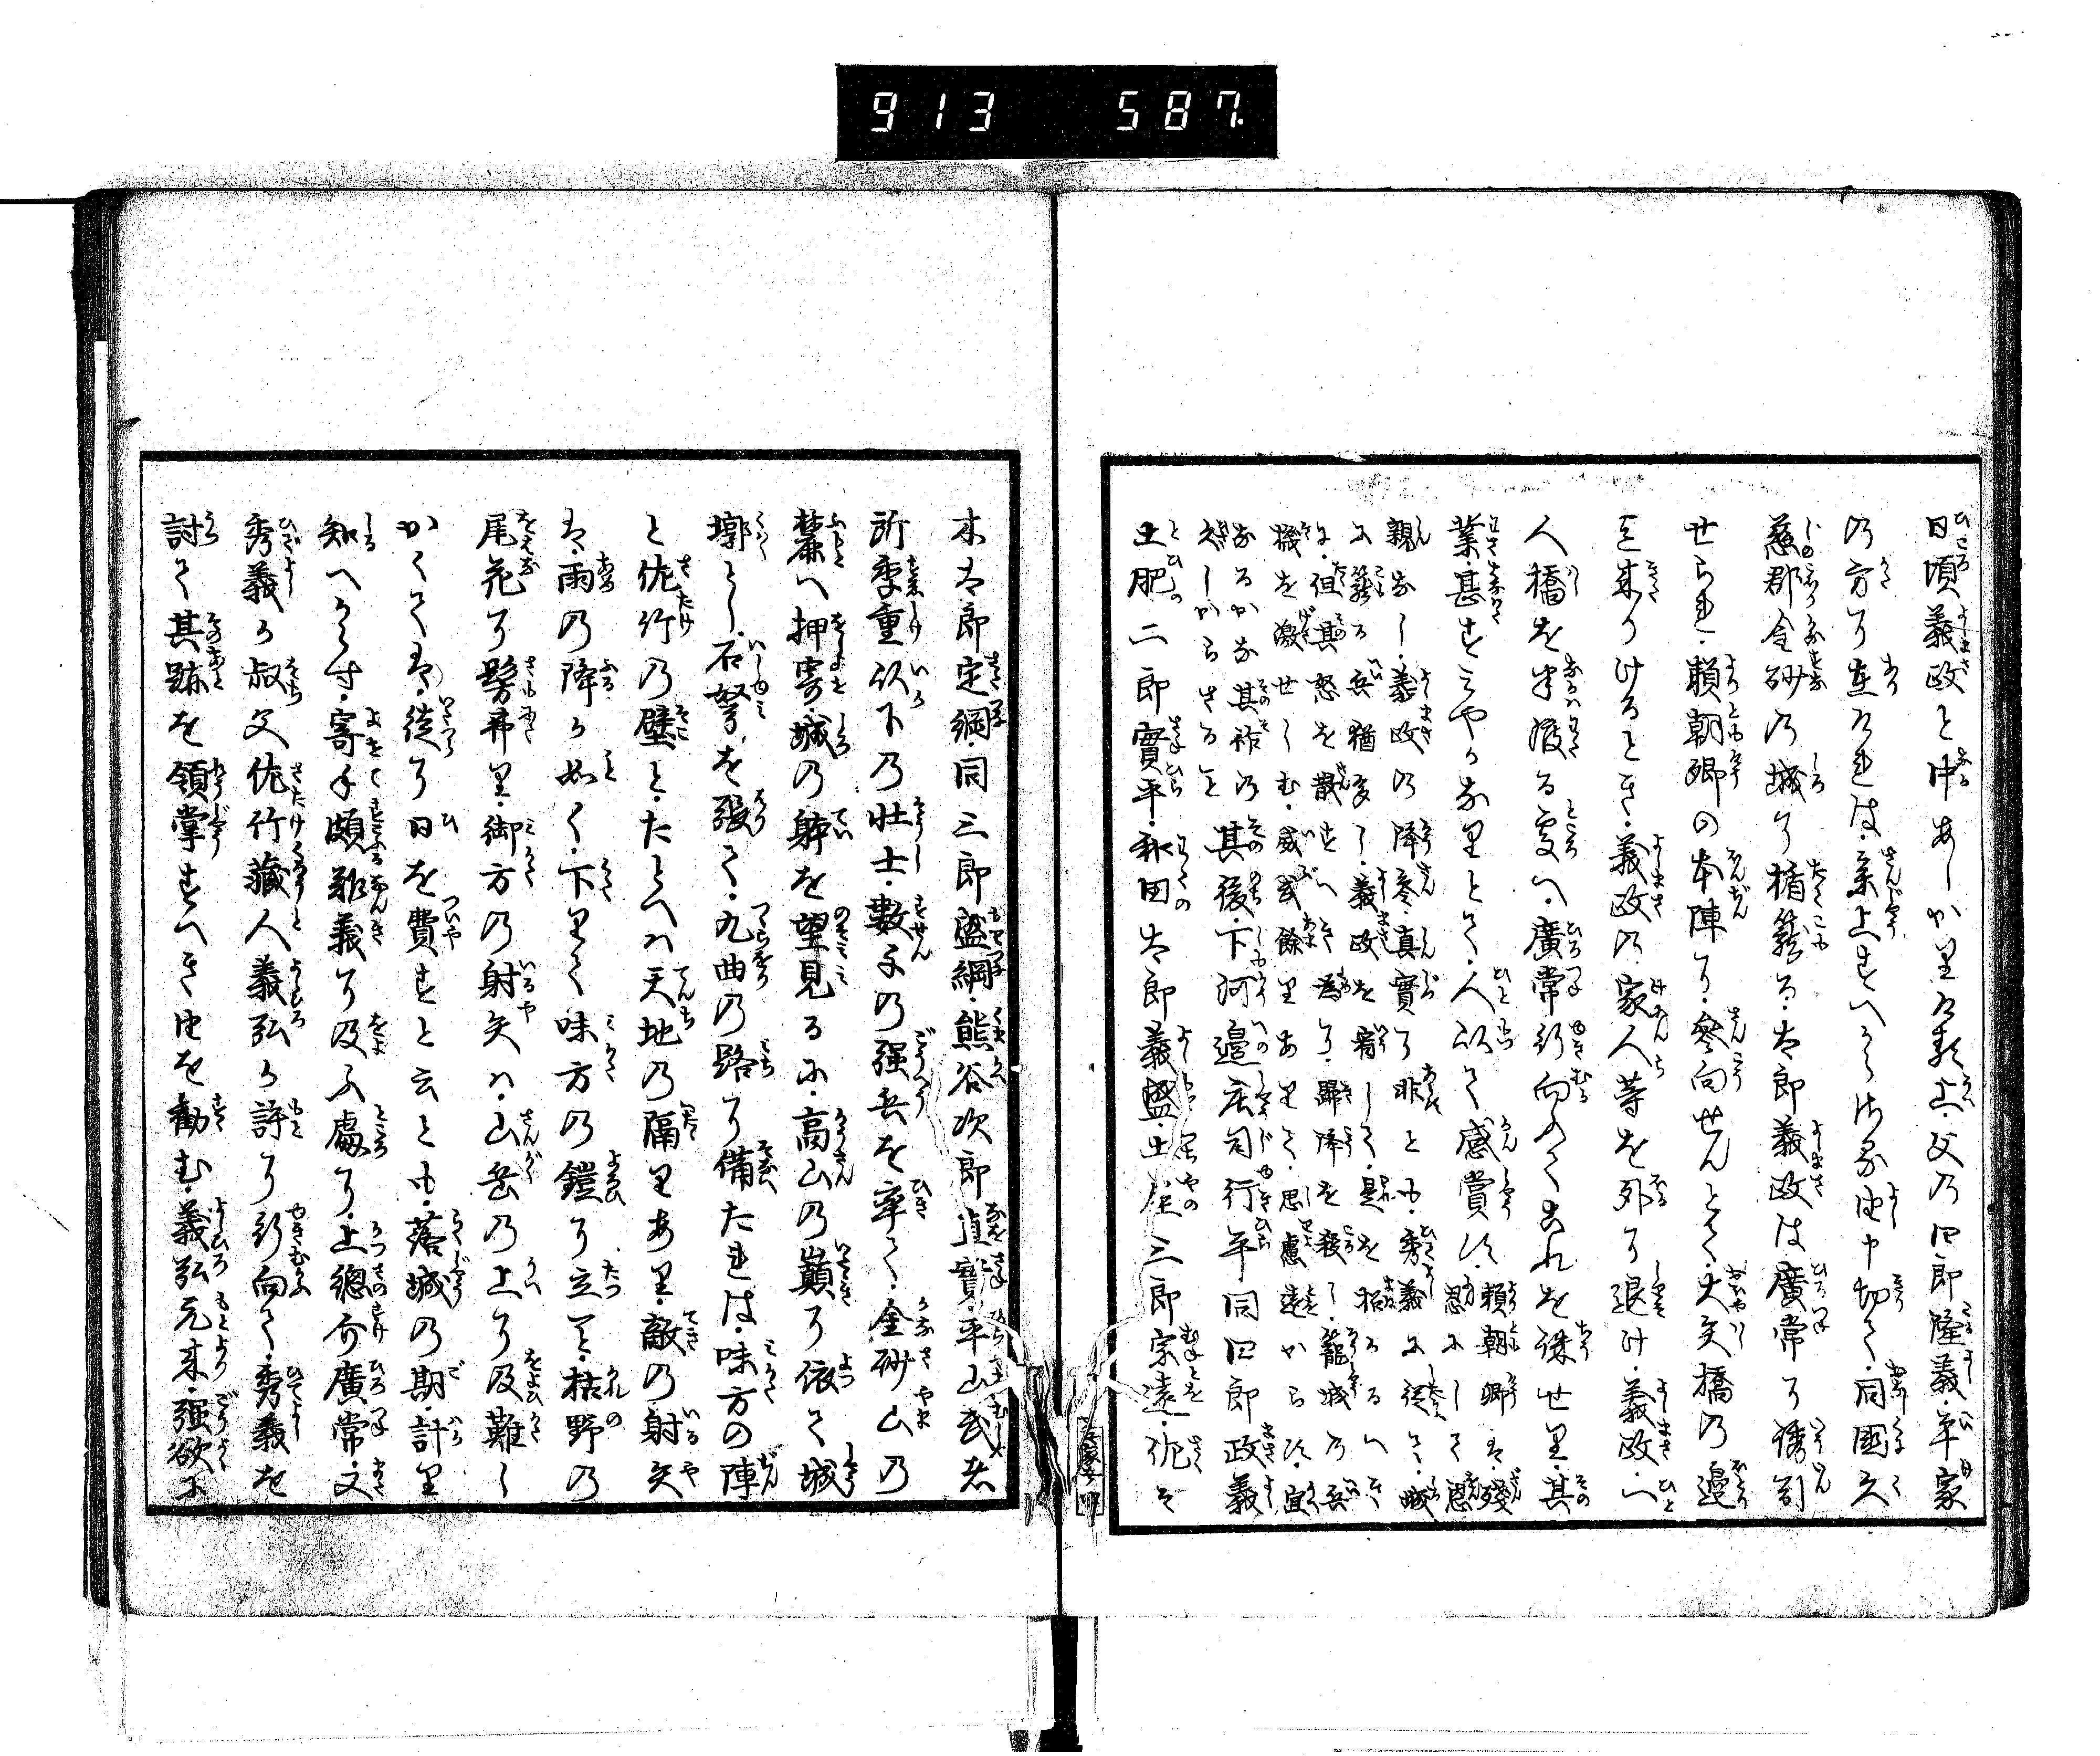 913 587
日頃義政と中あしかりける上父の四郎隆義平家
の方に在ければ参上すへからさる由申切て同国久
慈郡金砂の城に楯籠る太郎義政は廣常に誘引
せられ頼朝卿の本陣に参向せんとて大矢橋の邊
に来りけるとき義政の家人等を外に退け義政一
人橋を半渡る處へ廣常行向ひてこれを誅せり其
業甚すみやかなりとて人以て感賞す
頼朝卿は残
恩にして恩
親なし義政の降参真實に非とも秀義に従て城
に籠る兵猶多し義政を宥して是を招るへき
に但其怒を散すへき為に歸降を殺し籠城の兵
機を激せしむ威武餘りありて思慮遠からす宜
なるかな其祚の
久しからさること
其後下河邊庄司行平同四郎政義
土肥二郎實平和田太郎義盛土屋三郎宗遠佐々
木太郎定綱同三郎盛綱熊谷次郎直實平山武者
所季重以下の壮士数千の强兵を率て金砂山の
麓へ押寄城の躰を望見るに高山の巓に依て城
墎とし石弩を張て九曲の路に備たれは味方の陣
と佐竹の壁とたとへハ天地の隔りあり敵の射矢
は雨の降か如く下りて味方の鎧に立こと枯野の
尾花に髣髴り御方の射矢ハ山岳の上に及難し
かくては徒に日を費すと云とも落城の期計り
知へからす寄手頗難義に及ふ處に上總介廣常又
秀義か叔父佐竹蔵人義弘か許に行向て秀義を
討て其跡を領掌すへき由を勧む義弘元来强欲に